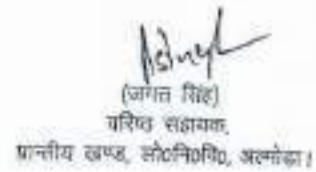 (जगत सिंह)
वरिष्ठ सहायक,
प्रान्तीय खण्ड, लो०नि०वि०, अल्मोड़ा।